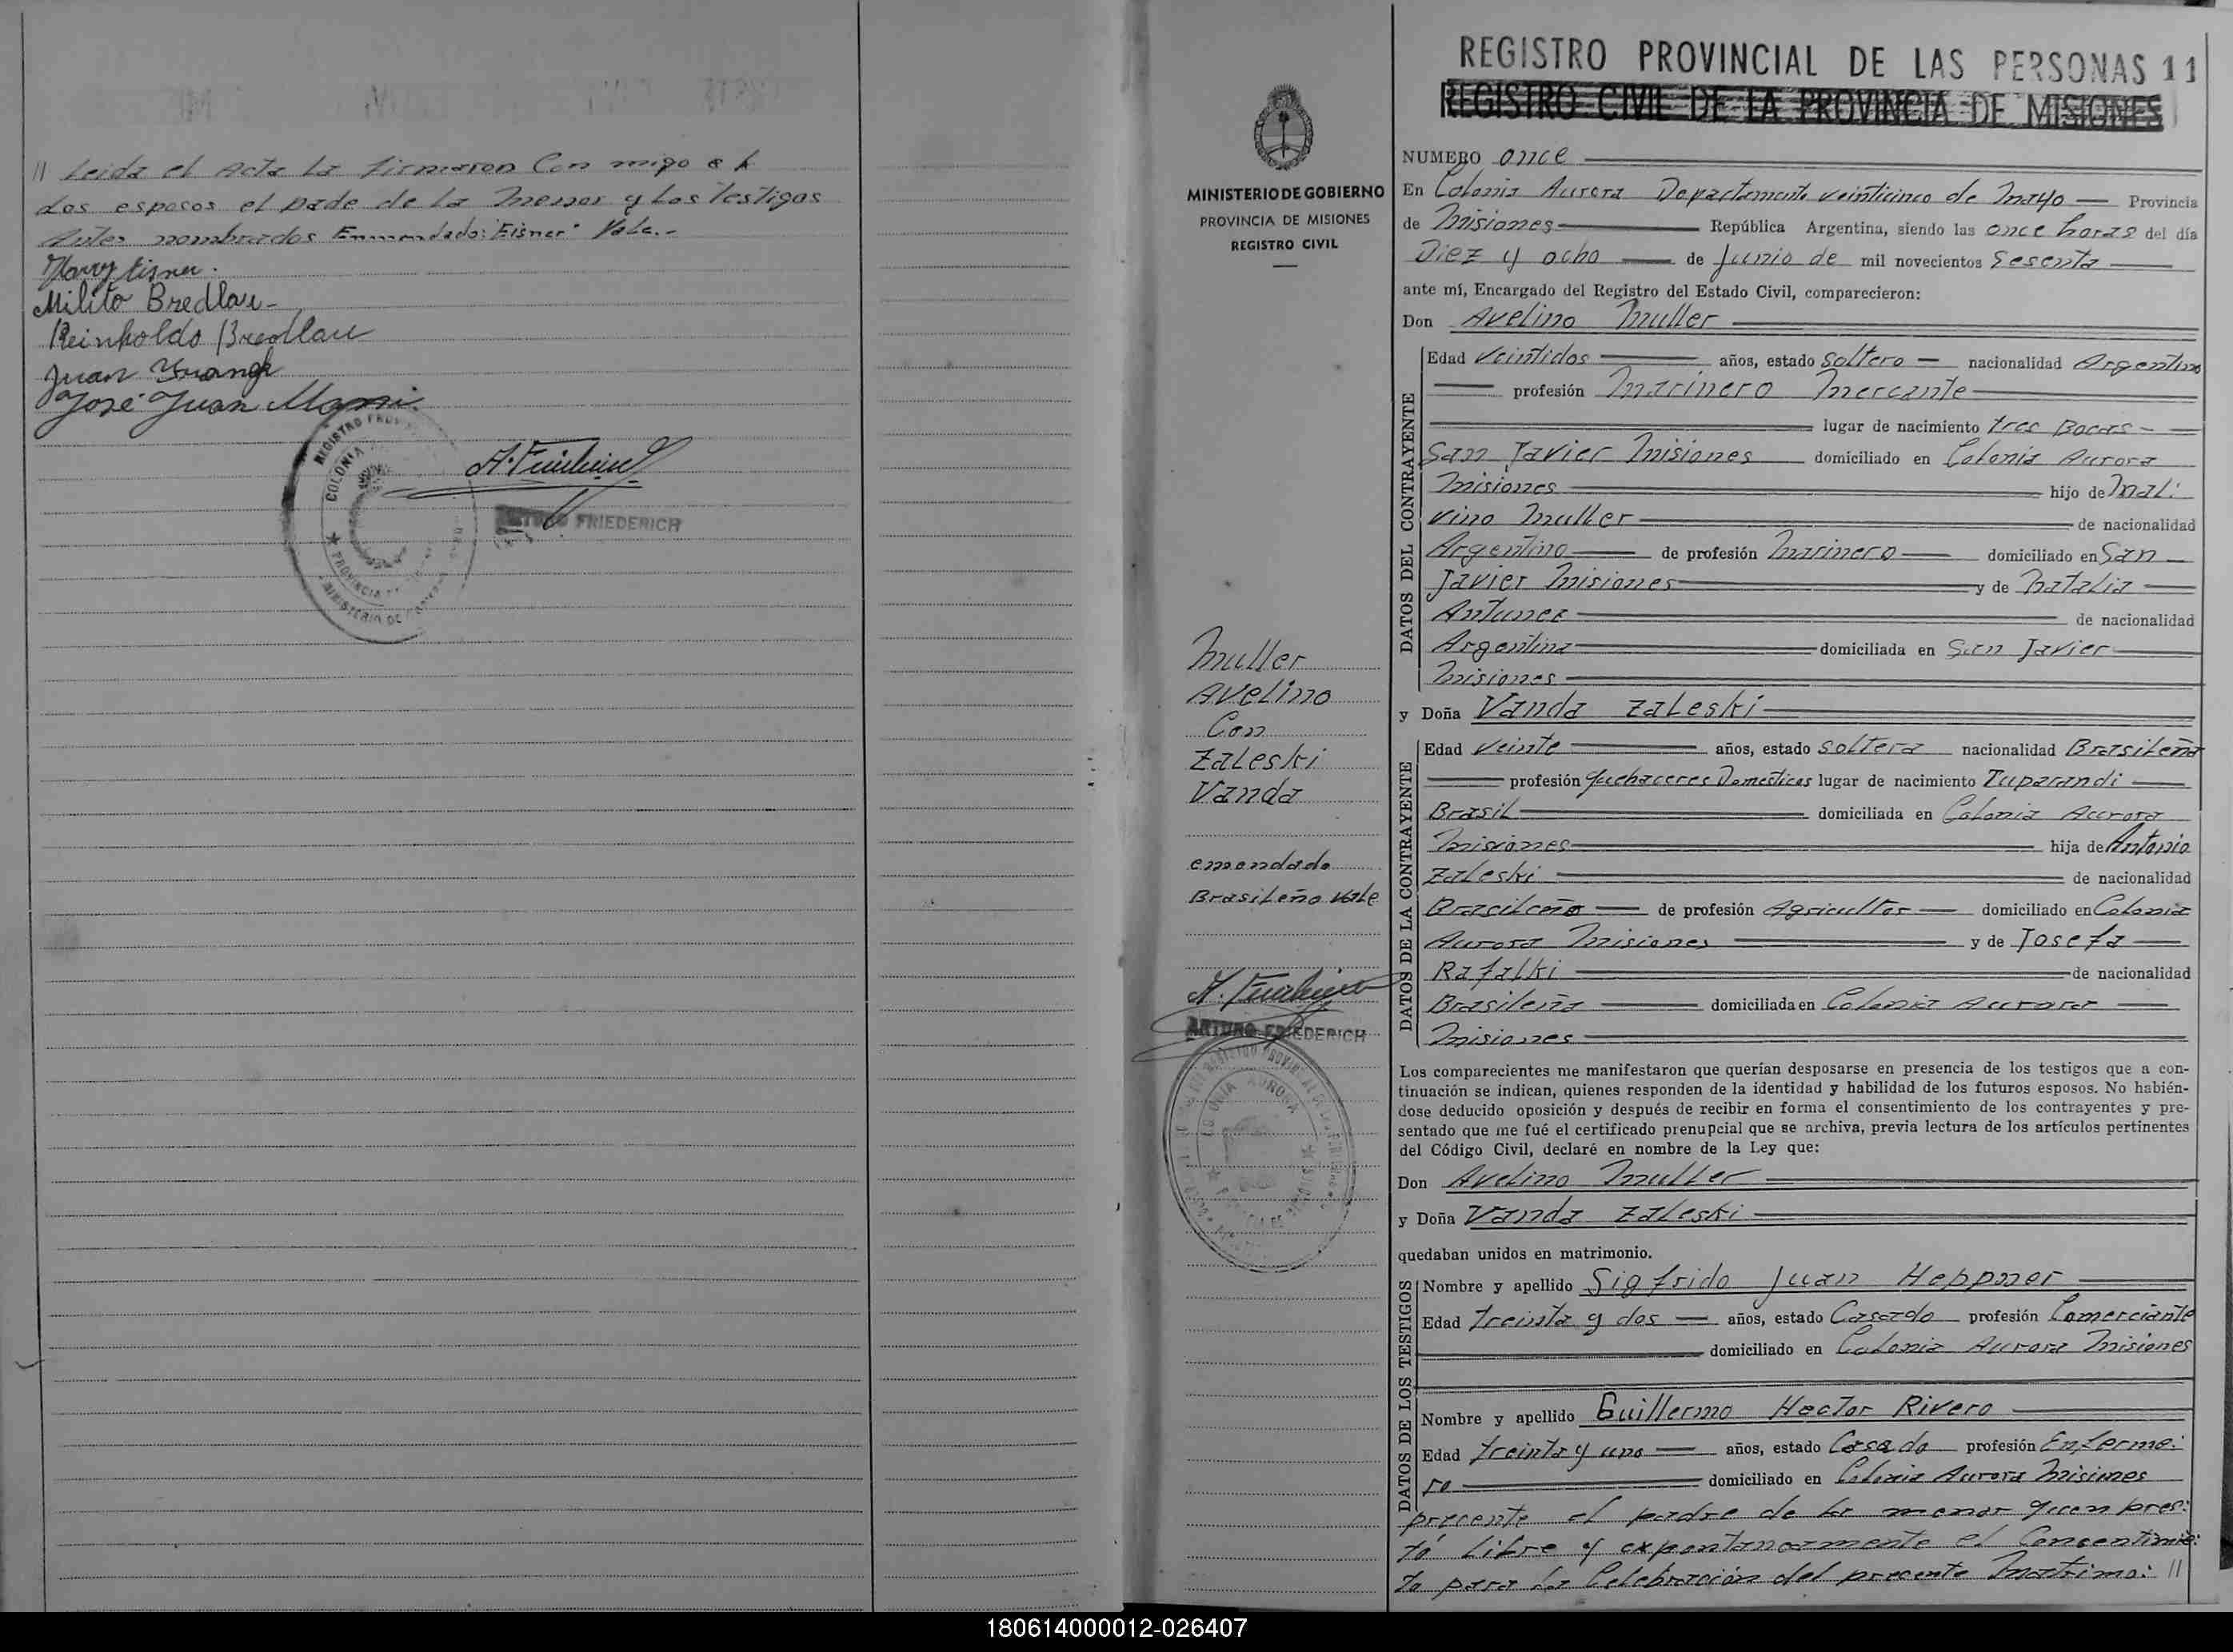 // Leida el Acta La firmaron Con migo
dos esposos el pade de La menor y Los Testigos
Antes nombrados Enmendado: "Eisner" Vale.-
Harry Eisner.
Milito Bredlau-
Reinholdo Bredlau
Juan
José Juan
REGISTRO
COLONIA
PROVINCIA
MINISTERIO DE
ARTURO FRIEDERICH
MINISTERIO DE GOBIERNO
PROVINCIA DE MISIONES
REGISTRO CIVIL
Muller
Avelino
Con
Zaleski
Vanda
emendado
Brasileño Vale
ARTURO FRIEDERICH
REGISTRO PROVINCIAL DE LAS PERSONAS 11
REGISTRO CIVIL DE LA PROVINCIA DE MISIONES
NUMERO once
En Colonia Aurora Departamento veinticinco de Mayo Provincia
de Misiones República Argentina, siendo las once horas del día
Diez y ocho de Junio de mil novecientos Sesenta
ante mí, Encargado del Registro del Estado Civil, comparecieron:
Don Avelino Muller
DATOS DEL CONTRAYENTE
Edad Veintidos años, estado soltero nacionalidad Argentino
profesión Marinero Mercante
lugar de nacimiento tres Bocas
San Javier Misiones domiciliado en Colonia Aurora
Misiones hijo de Mal:
vino Muller de nacionalidad
Argentino de profesión Marinero domiciliado en San
Javier Misiones y de Natalia
Antunez de nacionalidad
Argentina domiciliada en San Javier
Misiones
y Doña Vanda Zaleski
DATOS DE LA CONTRAYENTE
Edad Veinte años, estado soltera nacionalidad Brasileña
profesión quehaceres Domesticos lugar de nacimiento Tuparandi
Brasil domiciliada en Colonia Aurora
Misiones hija de Antonio
Zaleski de nacionalidad
Brasileño de profesión Agricultor domiciliado en Colonia
Aurora Misiones y de Josefa
Rafalki de nacionalidad
Brasileña domiciliada en Colonia Aurora
Misiones
Los comparecientes me manifestaron que querían desposarse en presencia de los testigos que a con-
tinuación se indican, quienes responden de la identidad y habilidad de los futuros esposos. No habién-
dose deducido oposición y después de recibir en forma el consentimiento de los contrayentes y pre-
sentado que me fué el certificado prenupcial que se archiva, previa lectura de los artículos pertinentes
del Código Civil, declaré en nombre de la Ley que:
Don Avelino Muller
y Doña Vanda Zaleski
quedaban unidos en matrimonio.
DATOS DE LOS TESTIGOS
Nombre y apellido Sigfrido Juan Heppner
Edad treinta y dos años, estado Casado profesión Comerciante
domiciliado en Colonia Aurora Misiones
Nombre y apellido Guillermo Hector Rivero
Edad treinta y uno años, estado Casado profesión Enferme:
ro domiciliado en Colonia Aurora Misiones
presente el padre de la menor quen pres:
tó Libre y expontaneamente el Consentimie:
to para La Celebración del precente Matrimo: //
180614000012-026407